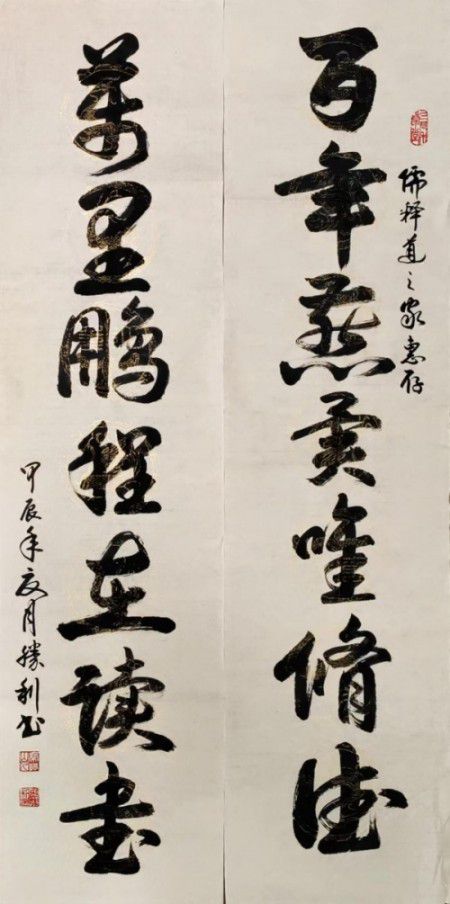 儒释道之家惠存
百年燕翼唯脩德
萬里鵬程在读書
甲辰年夏月勝利书